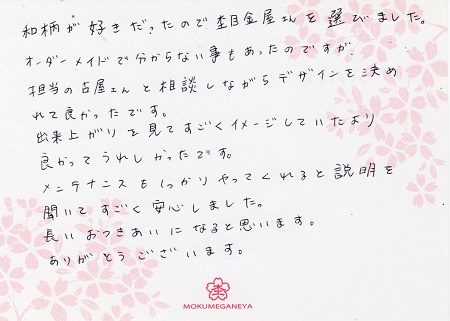 和柄が好きだったので杢目金屋さんを選びました。
オーダーメイドで分からない事もあったのですが
担当の古屋さんと相談しながらデザインを決め
れて良かったです。
出来上がりを見てすごくイメージしていたより
良かってうれしかったです。
メンテナンスもしっかりやってくれると説明を
聞いてすごく安心しました。
長いおつきあいになると思います。
ありがとうございます。
MOKUMEGANEYA